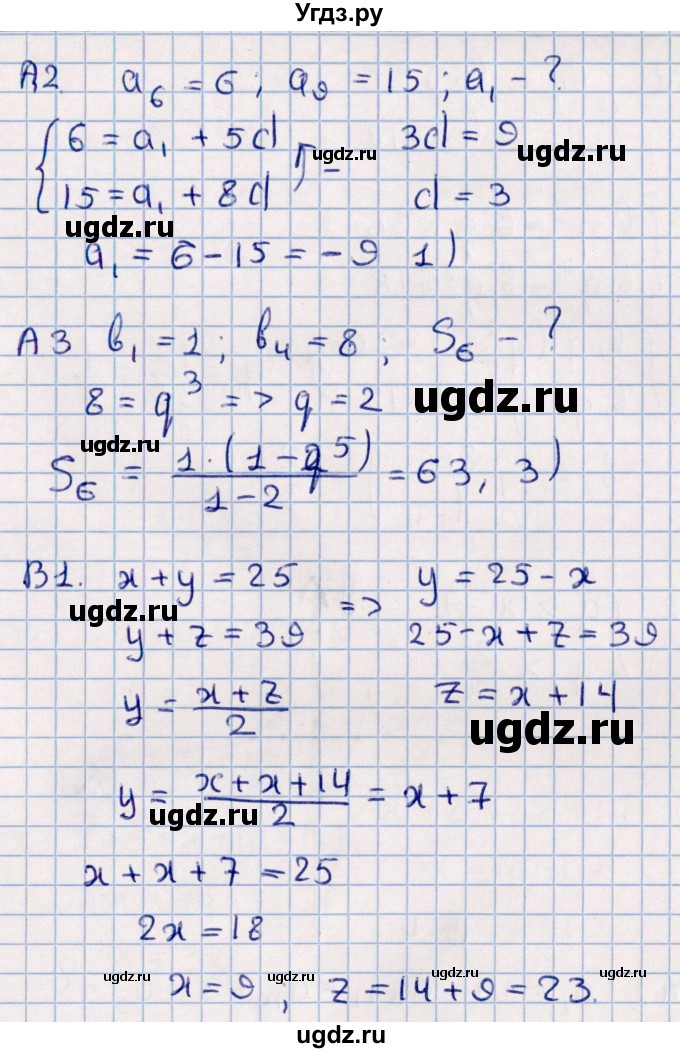 Угдз.ру
A2. a₆ = 6; a₉ = 15; a₁ - ?
{ 6 = a₁ + 5d
3d = 9
ugdz.ru
ugdz.ru
15 = a₁ + 8d
d = 3
ugdz.ru
a₁ = 6 - 15 = -9 1)
A3 b₁ = 1; b₄ = 8; S₆ - ?
8 = q³ => q = 2
ugdz.ru
ugdz.ru
S₆ = 1·(1-q⁵)/(1-2) = 63, 3)
B1. x + y = 25 => y = 25 - x
ugdz.ru
y + z = 39 25 - x + z = 39
y = (x + z)/2 z = x + 14
ugdz.ru
y = (x + x + 14)/2 = x + 7
ugdz.ru
x + x + 7 = 25
2x = 18
ugdz.ru ugdz.ru ugdz.ru ugdz.ru
x = 9; z = 14 + 9 = 23.
ugdz.ru